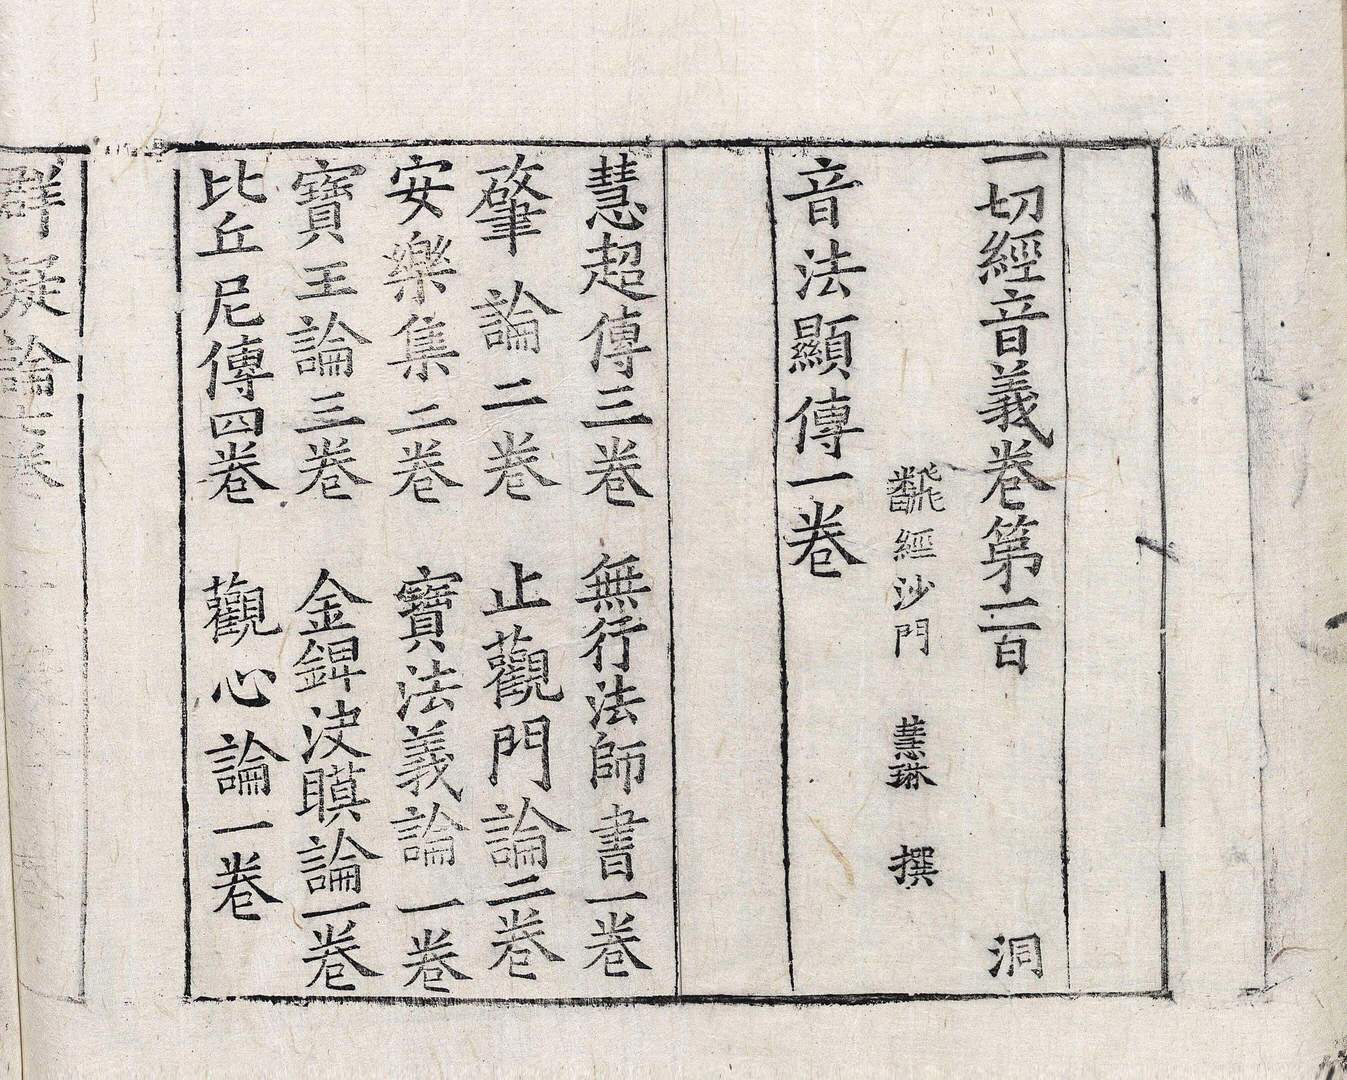 一切經音義卷第一百　洞
飜經沙門　慧琳　撰
音法顯傳一卷
慧超傳三卷　無行法師書一卷
肇論二卷　止觀門論二卷
安樂集二卷　寶法義論一卷
寶王論三卷　金錍決瞙論一卷
比丘尼傳四卷　觀心論一卷
群疑論